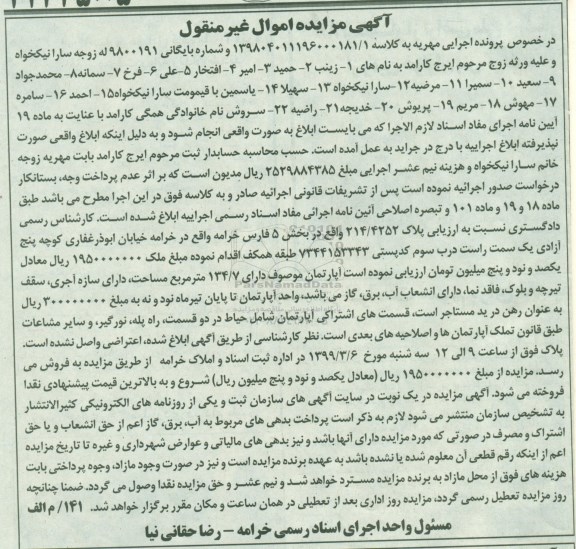 آگهی مزایده اموال غیر منقول
در خصوص پرونده اجرایی مهریه به کلاسه ۱۳۹۸۰۴۰۱۱۱۹۶۰۰۰۱۸۱/۱ و شماره بایگانی ۹۸۰۰۱۹۱ له زوجه سارا نیکخواه
و علیه ورثه زوج مرحوم ایرج کارامد به نام های ۱- زینب ۲- حمید ۳- امیر ۴- افتخار ۵-علی ۶- فرخ ۷- سمانه۸- محمدجواد
۹- سعید ۱۰- سمیرا ۱۱- مرضیه۱۲-سارا نیکخواه ۱۳- سهیلا ۱۴- یاسمین با قیمومت سارا نیکخواه۱۵- احمد ۱۶- سامره
۱۷- مهوش ۱۸- مریم ۱۹- پریوش ۲۰- خدیجه۲۱- راضیه ۲۲- سروش نام خانوادگی همگی کارامد با عنایت به ماده ۱۹
آیین نامه اجرای مفاد اسناد لازم الاجرا که می بایست ابلاغ به صورت واقعی انجام شود و به دلیل اینکه ابلاغ واقعی صورت
نپذیرفته ابلاغ اجراییه با درج در جراید به عمل آمده است. حسب محاسبه حسابدار ثبت مرحوم ایرج کارامد بابت مهریه زوجه
خانم سارا نیکخواه و هزینه نیم عشر اجرایی مبلغ ۲۵۲۹۸۸۴۳۸۵ ریال مدیون است که بر اثر عدم پرداخت وجه، بستانکار
درخواست صدور اجرائیه نموده است پس از تشریفات قانونی اجرائیه صادر و به کلاسه فوق در این اجرا مطرح می باشد طبق
ماده ۱۸ و ۱۹ و ماده ۱۰۱ و تبصره اصلاحی آئین نامه اجرائی مفاد اسناد رسمی اجراییه ابلاغ شده است. کارشناس رسمی
دادگستری نسبت به ارزیابی پلاک ۲۱۴/۴۲۵۲ واقع در بخش ۵ فارس خرامه واقع در خرامه خیابان ابوذرغفاری کوچه پنج
آزادی یک سمت راست درب سوم کدپستی ۷۳۴۴۱۵۳۳۴۳ طبقه همکف اقدام نموده مبلغ ملک ۱۹۵۰۰۰۰۰۰۰ ریال معادل
یکصد و نود و پنج میلیون تومان ارزیابی نموده است آپارتمان موصوف دارای ۱۳۴/۷ مترمربع مساحت، دارای سازه آجری، سقف
تیرچه و بلوک، فاقد نما، دارای انشعاب آب، برق، گاز می باشد، واحد آپارتمان تا پایان تیرماه نود و نه به مبلغ ۳۰۰۰۰۰۰۰۰ ریال
به عنوان رهن در ید مستاجر است، قسمت های اشتراکی آپارتمان شامل حیاط در دو قسمت، راه پله، نورگیر، و سایر مشاعات
طبق قانون تملک آپارتمان ها و اصلاحیه های بعدی است. نظر کارشناسی از طریق آگهی ابلاغ شده، اعتراضی واصل نشده است.
پلاک فوق از ساعت ۹ الی ۱۲ سه شنبه مورخ ۱۳۹۹/۳/۶ در اداره ثبت اسناد و املاک خرامه از طریق مزایده به فروش می
رسد. مزایده از مبلغ ۱۹۵۰۰۰۰۰۰۰ ریال (معادل یکصد و نود و پنج میلیون ریال) شروع و به بالاترین قیمت پیشنهادی نقدا
فروخته می شود. آگهی مزایده در یک نوبت در سایت آگهی های سازمان ثبت و یکی از روزنامه های الکترونیکی کثیرالانتشار
به تشخیص سازمان منتشر می شود لازم به ذکر است پرداخت بدهی های مربوط به آب، برق، گاز اعم از حق انشعاب و یا حق
اشتراک و مصرف در صورتی که مورد مزایده دارای آنها باشد و نیز بدهی های مالیاتی و عوارض شهرداری و غیره تا تاریخ مزایده
اعم از اینکه رقم قطعی آن معلوم شده یا نشده باشد به عهده برنده مزایده است و نیز در صورت وجود مازاد، وجوه پرداختی بابت
هزینه های فوق از محل مازاد به برنده مزایده مسترد خواهد شد و نیم عشر و حق مزایده نقدا وصول می گردد. ضمنا چنانچه
روز مزایده تعطیل رسمی گردد، مزایده روز اداری بعد از تعطیلی در همان ساعت و مکان مقرر برگزار خواهد شد. ۱۴۱/ م الف
مسئول واحد اجرای اسناد رسمی خرامه – رضا حقانی نیا